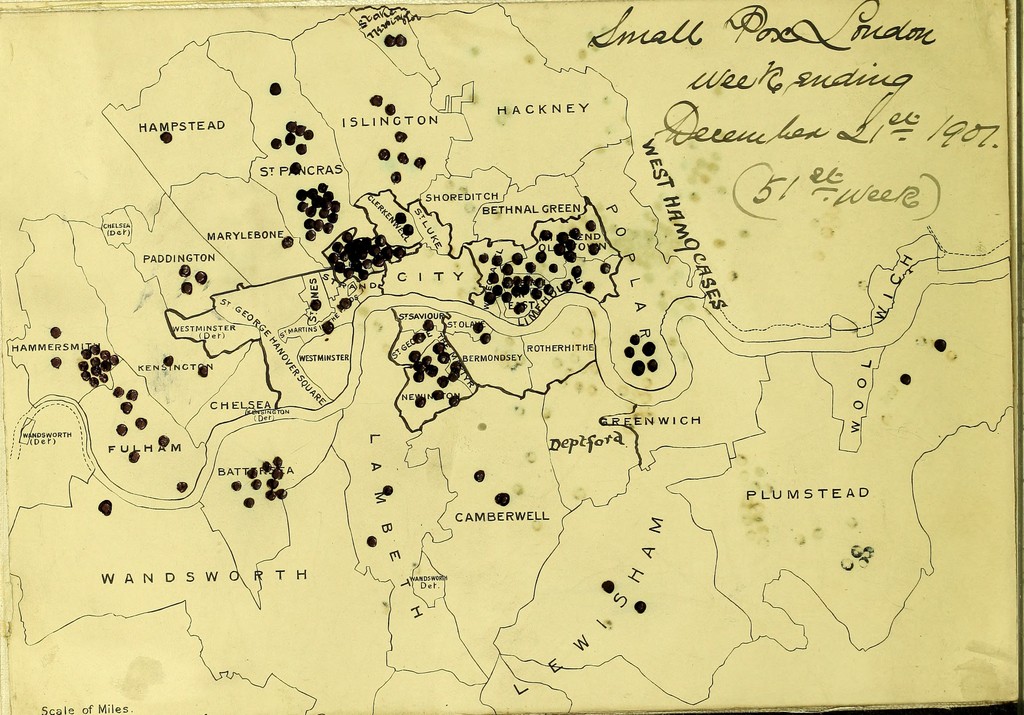 Small Pox London
week ending
December 21st 1901.
(51st week)
Stoke
HACKNEY
ISLINGTON
HAMPSTEAD
ST PANCRAS
WEST HAM CASES
SHOREDITCH
CLERKENWELL
ST LUKE
BETHNAL GREEN
POPLAR
CHELSEA
(Det)
MARYLEBONE
PADDINGTON
CITY
STRAND
LIMEHOUSE
ST GEORGE HANOVER SQUARE
WESTMINSTER
(Det)
WESTMINSTER
ST SAVIOUR
ST OLAVE
BERMONDSEY
ROTHERHITHE
NEWINGTON
HAMMERSMITH
KENSINGTON
CHELSEA
KENSINGTON
(Det)
WOOLWICH
GREENWICH
Deptford
WANDSWORTH
(Det)
FULHAM
BATTERSEA
LAMBETH
CAMBERWELL
PLUMSTEAD
WANDSWORTH
WANDSWORTH
Det.
LEWISHAM
Scale of Miles.